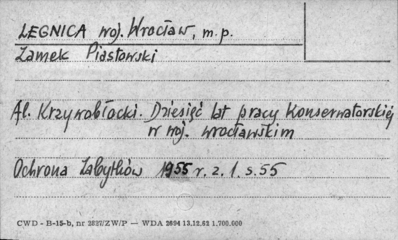 LEGNICA woj. Wrocław, m.p.
Zamek Piastowski
Al. Krzywobłocki. Dziesięć lat pracy konserwatorskiej
w woj. wrocławskim
Ochrona Zabytków 1955 r. z. 1. s. 55
CWD - B-15-b, nr 3827/ZW/P — WDA 2694 13.12.62 1,700.000